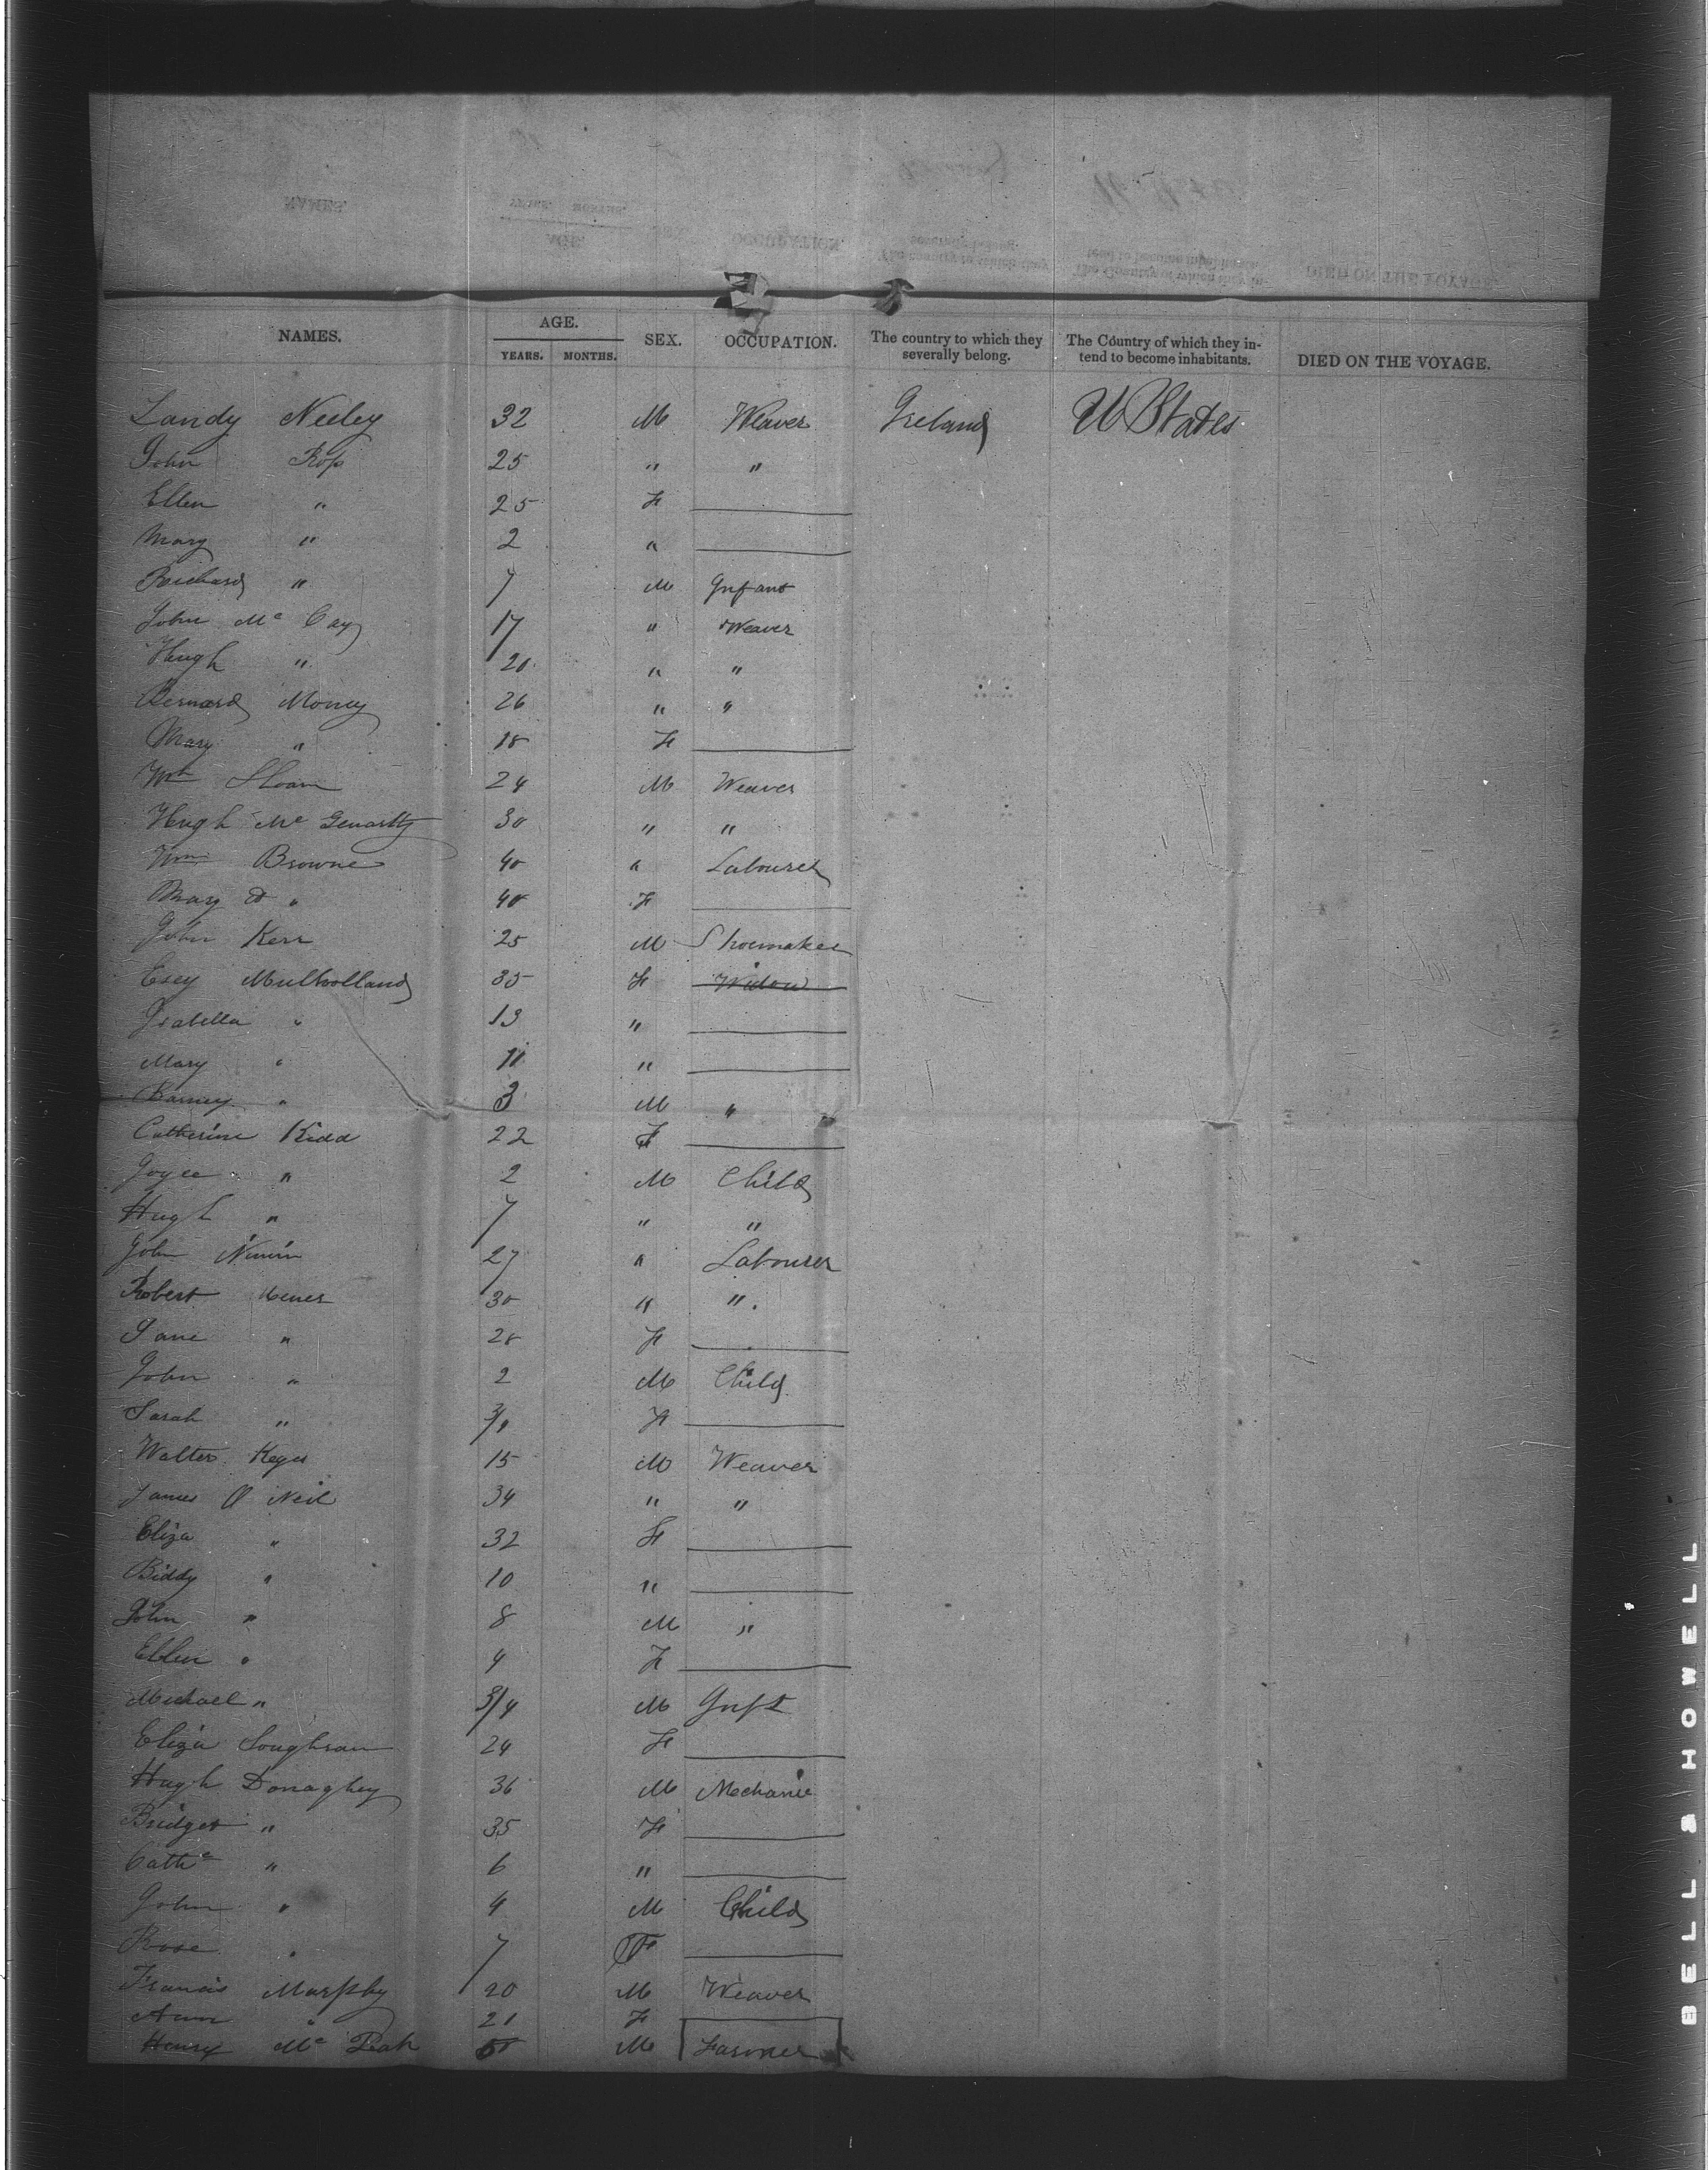 NAMES. AGE. SEX. OCCUPATION. The country to which they severally belong. The Country of which they intend to become inhabitants. DIED ON THE VOYAGE.
YEARS. MONTHS.
Landy Neeley 32 M Weaver Ireland U States
John Ross 25 " "
Ellen " 25 F
Mary " 2 "
Richard " 7 M Infant
John Mc Cay 17 " Weaver
Hugh " 20 " "
Bernard Money 26 " "
Mary " 18 F
Wm Sloan 24 M Weaver
Hugh Mc 30 " "
Wm Browne 40 " Labourer
Mary " 40 F
John Kerr 25 M Shoemaker
Esey Mulholland 35 F Widow
Isabella " 13 "
Mary " 11 "
Barney " 3 M "
Catherine Kidd 22 F
Joyce " 2 M Child
Hugh " 7 " "
John 27 " Labourer
Robert 30 " "
Jane " 28 F
John " 2 M Child
Sarah " F
Walter Keyes 15 M Weaver
James O Neil 34 " "
Eliza " 32 F
Biddy " 10 "
John " 8 M "
Ellen " 4 F
Michael " 3/4 M Inft
Eliza Loughran 24 F
Hugh Donaghey 36 M Mechanic
Bridget " 35 F
Cathe " 6 "
John " 4 M Child
Rose " 7 F
Francis Murphy 20 M Weaver
Ann " 21 F
Henry Mc Peak M Farmer
BELL & HOWELL